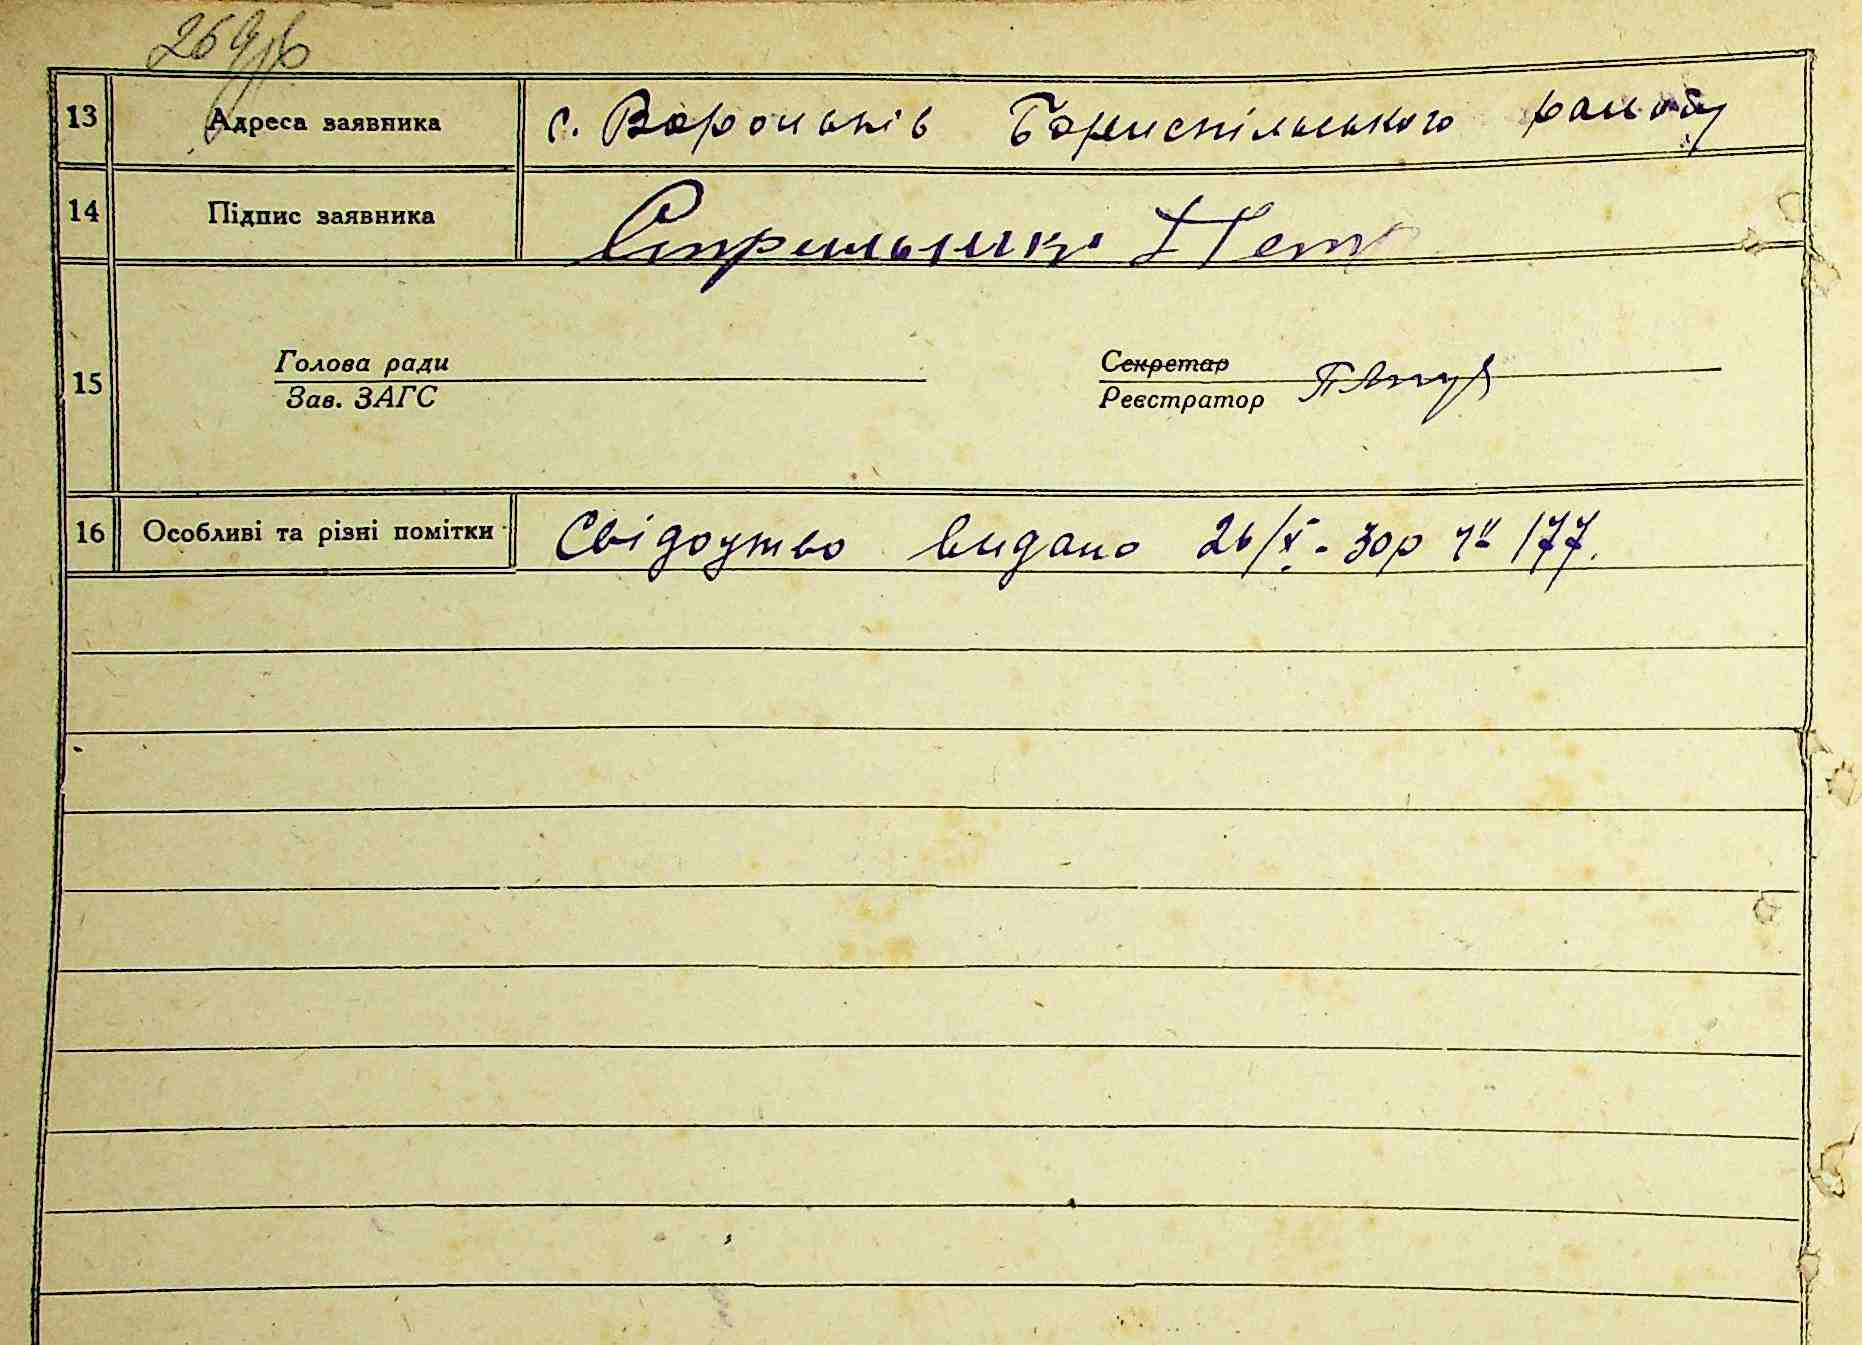 13 Адреса заявника с. Вороньків Бориспільського району
14 Підпис заявника Стрильник
Голова ради Секретар
15
Зав. ЗАГС Реєстратор
16 Особливі та різні помітки Свідоцтво видано 26/X - 30р № 177.